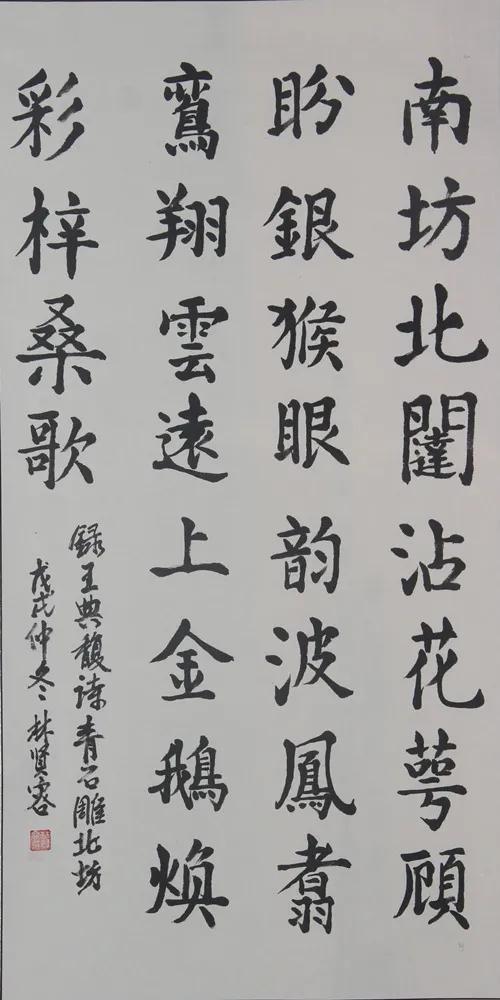 南坊北闥沾花萼顧
盼銀猴眼韵波鳳翥
鸞翔雲遠上金鵝煥
彩梓桑歌
録王典馥詩青石雕北坊
戊戌仲冬林賢容